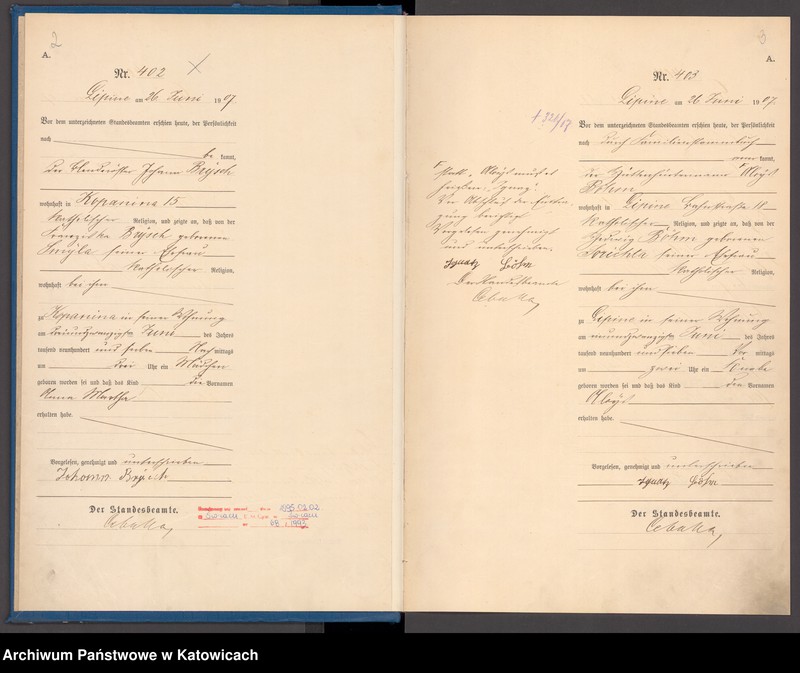 2
A.
Nr. 402
Lipine am 26 Juni 1907.
Vor dem unterzeichneten Standesbeamten erschien heute, der Persönlichkeit
nach
be kannt,
der Johann Brysch
wohnhaft in Kopanina 15
katholischer Religion, und zeigte an, daß von der
Franziska Brysch geborenen
seiner Ehefrau
katholischer Religion,
wohnhaft bei ihm
zu Kopanina in seiner Wohnung
am dreiundzwanzigsten Juni des Jahres
tausend neunhundert und sieben Nach mittags
um drei Uhr ein Mädchen
geboren worden sei und daß das Kind die Vornamen
Anna Martha
erhalten habe.
Vorgelesen, genehmigt und unterschrieben
Johann Brysch
Der Standesbeamte.
1995 02 02
1993
3
A.
Nr. 403
Lipine am 26 Juni 1907.
Vor dem unterzeichneten Standesbeamten erschien heute, der Persönlichkeit
nach durch Familienstammbuch
aner kannt,
der Aloys
Böhm
wohnhaft in Lipine Bahnstraße 11
katholischer Religion, und zeigte an, daß von der
Hedwig Böhm geborenen
seiner Ehefrau
katholischer Religion,
wohnhaft bei ihm
zu Lipine in seiner Wohnung
am neunundzwanzigsten Juni des Jahres
tausend neunhundert und sieben Vor mittags
um zwei Uhr ein Knabe
geboren worden sei und daß das Kind die Vornamen
Aloys
erhalten habe.
Vorgelesen, genehmigt und unterschrieben
Ignatz Böhm
Der Standesbeamte.
statt "Aloys" muss es
heißen: "Ignatz".
Vorgelesen genehmigt
und unterschrieben.
Ignatz Böhm
Der Standesbeamte
Archiwum Państwowe w Katowicach